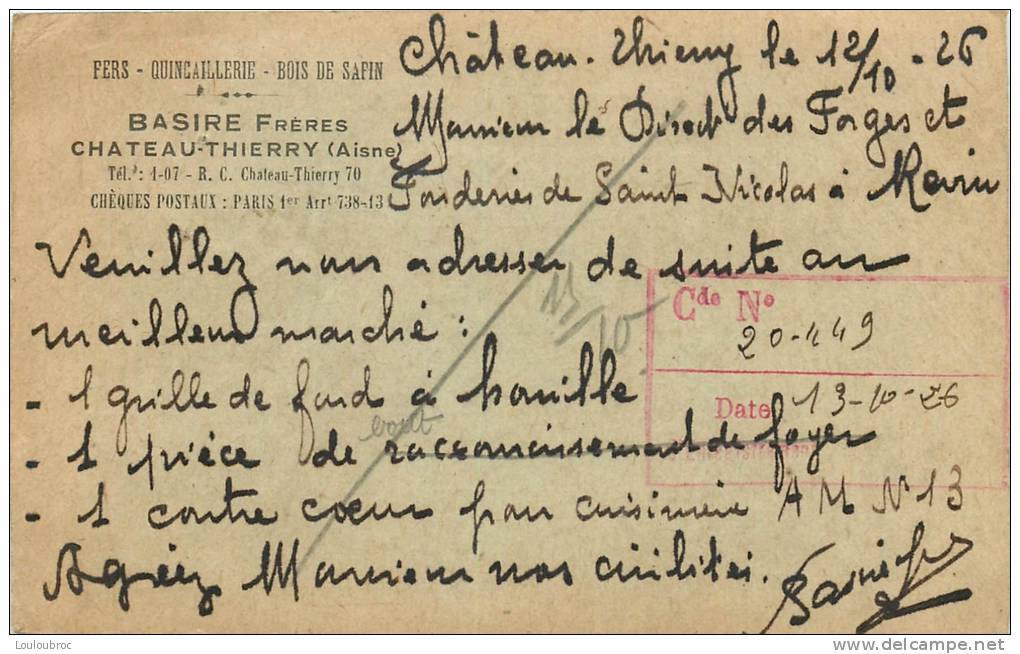 FERS - QUINCAILLERIE - BOIS DE SAPIN
BASIRE FRÈRES
CHATEAU-THIERRY (Aisne)
Tél. : 1-07 - R. C. Chateau-Thierry 70
CHÈQUES POSTAUX : PARIS 1er Arrt 738-13
Château-Thierry le 12/10-26
Monsieur le Direct des Forges et
Fonderies de Saint Nicolas à Revin
Veuillez nous adresser de suite au
meilleur marché :
13/10
Cde No
20-449
Date 13-10-26
- 1 grille de fond à houille
bout
- 1 pièce de raccourcissement de foyer
- 1 contre coeur pour cuisinière AM No 13
Agréez Monsieur nos civilités.
Basire frs
Louloubroc
www.delcampe.net